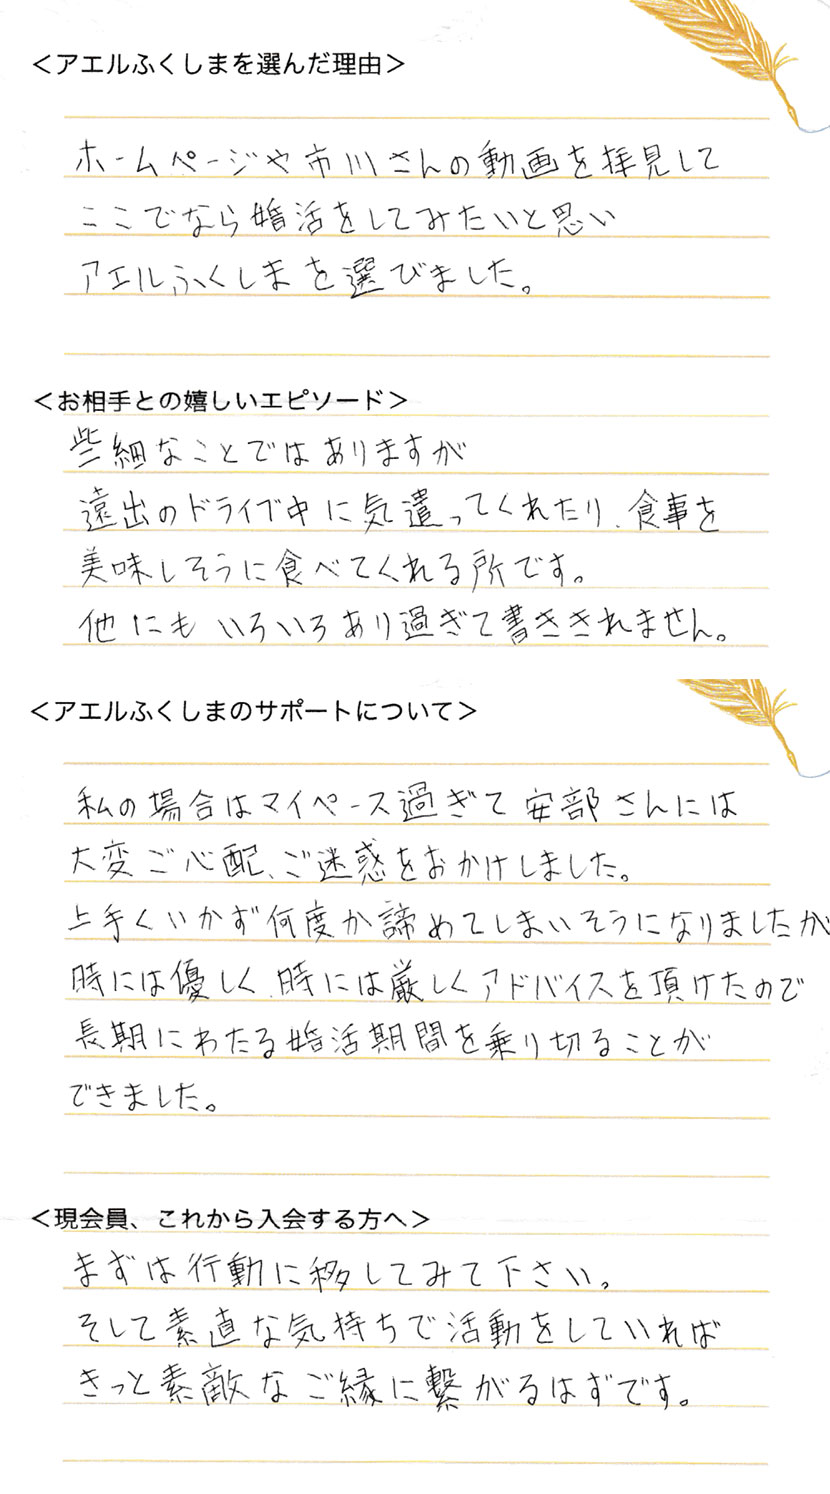 ＜アエルふくしまを選んだ理由＞
ホームページや市川さんの動画を拝見して
ここでなら婚活をしてみたいと思い
アエルふくしまを選びました。
＜お相手との嬉しいエピソード＞
些細なことではありますが
遠出のドライブ中に気遣ってくれたり、食事を
美味しそうに食べてくれる所です。
他にもいろいろあり過ぎて書ききれません。
＜アエルふくしまのサポートについて＞
私の場合はマイペース過ぎて安部さんには
大変ご心配、ご迷惑をおかけしました。
上手くいかず何度か諦めてしまいそうになりましたが
時には優しく、時には厳しくアドバイスを頂けたので
長期にわたる婚活期間を乗り切ることが
できました。
＜現会員、これから入会する方へ＞
まずは行動に移してみて下さい。
そして素直な気持ちで活動をしていれば
きっと素敵なご縁に繋がるはずです。